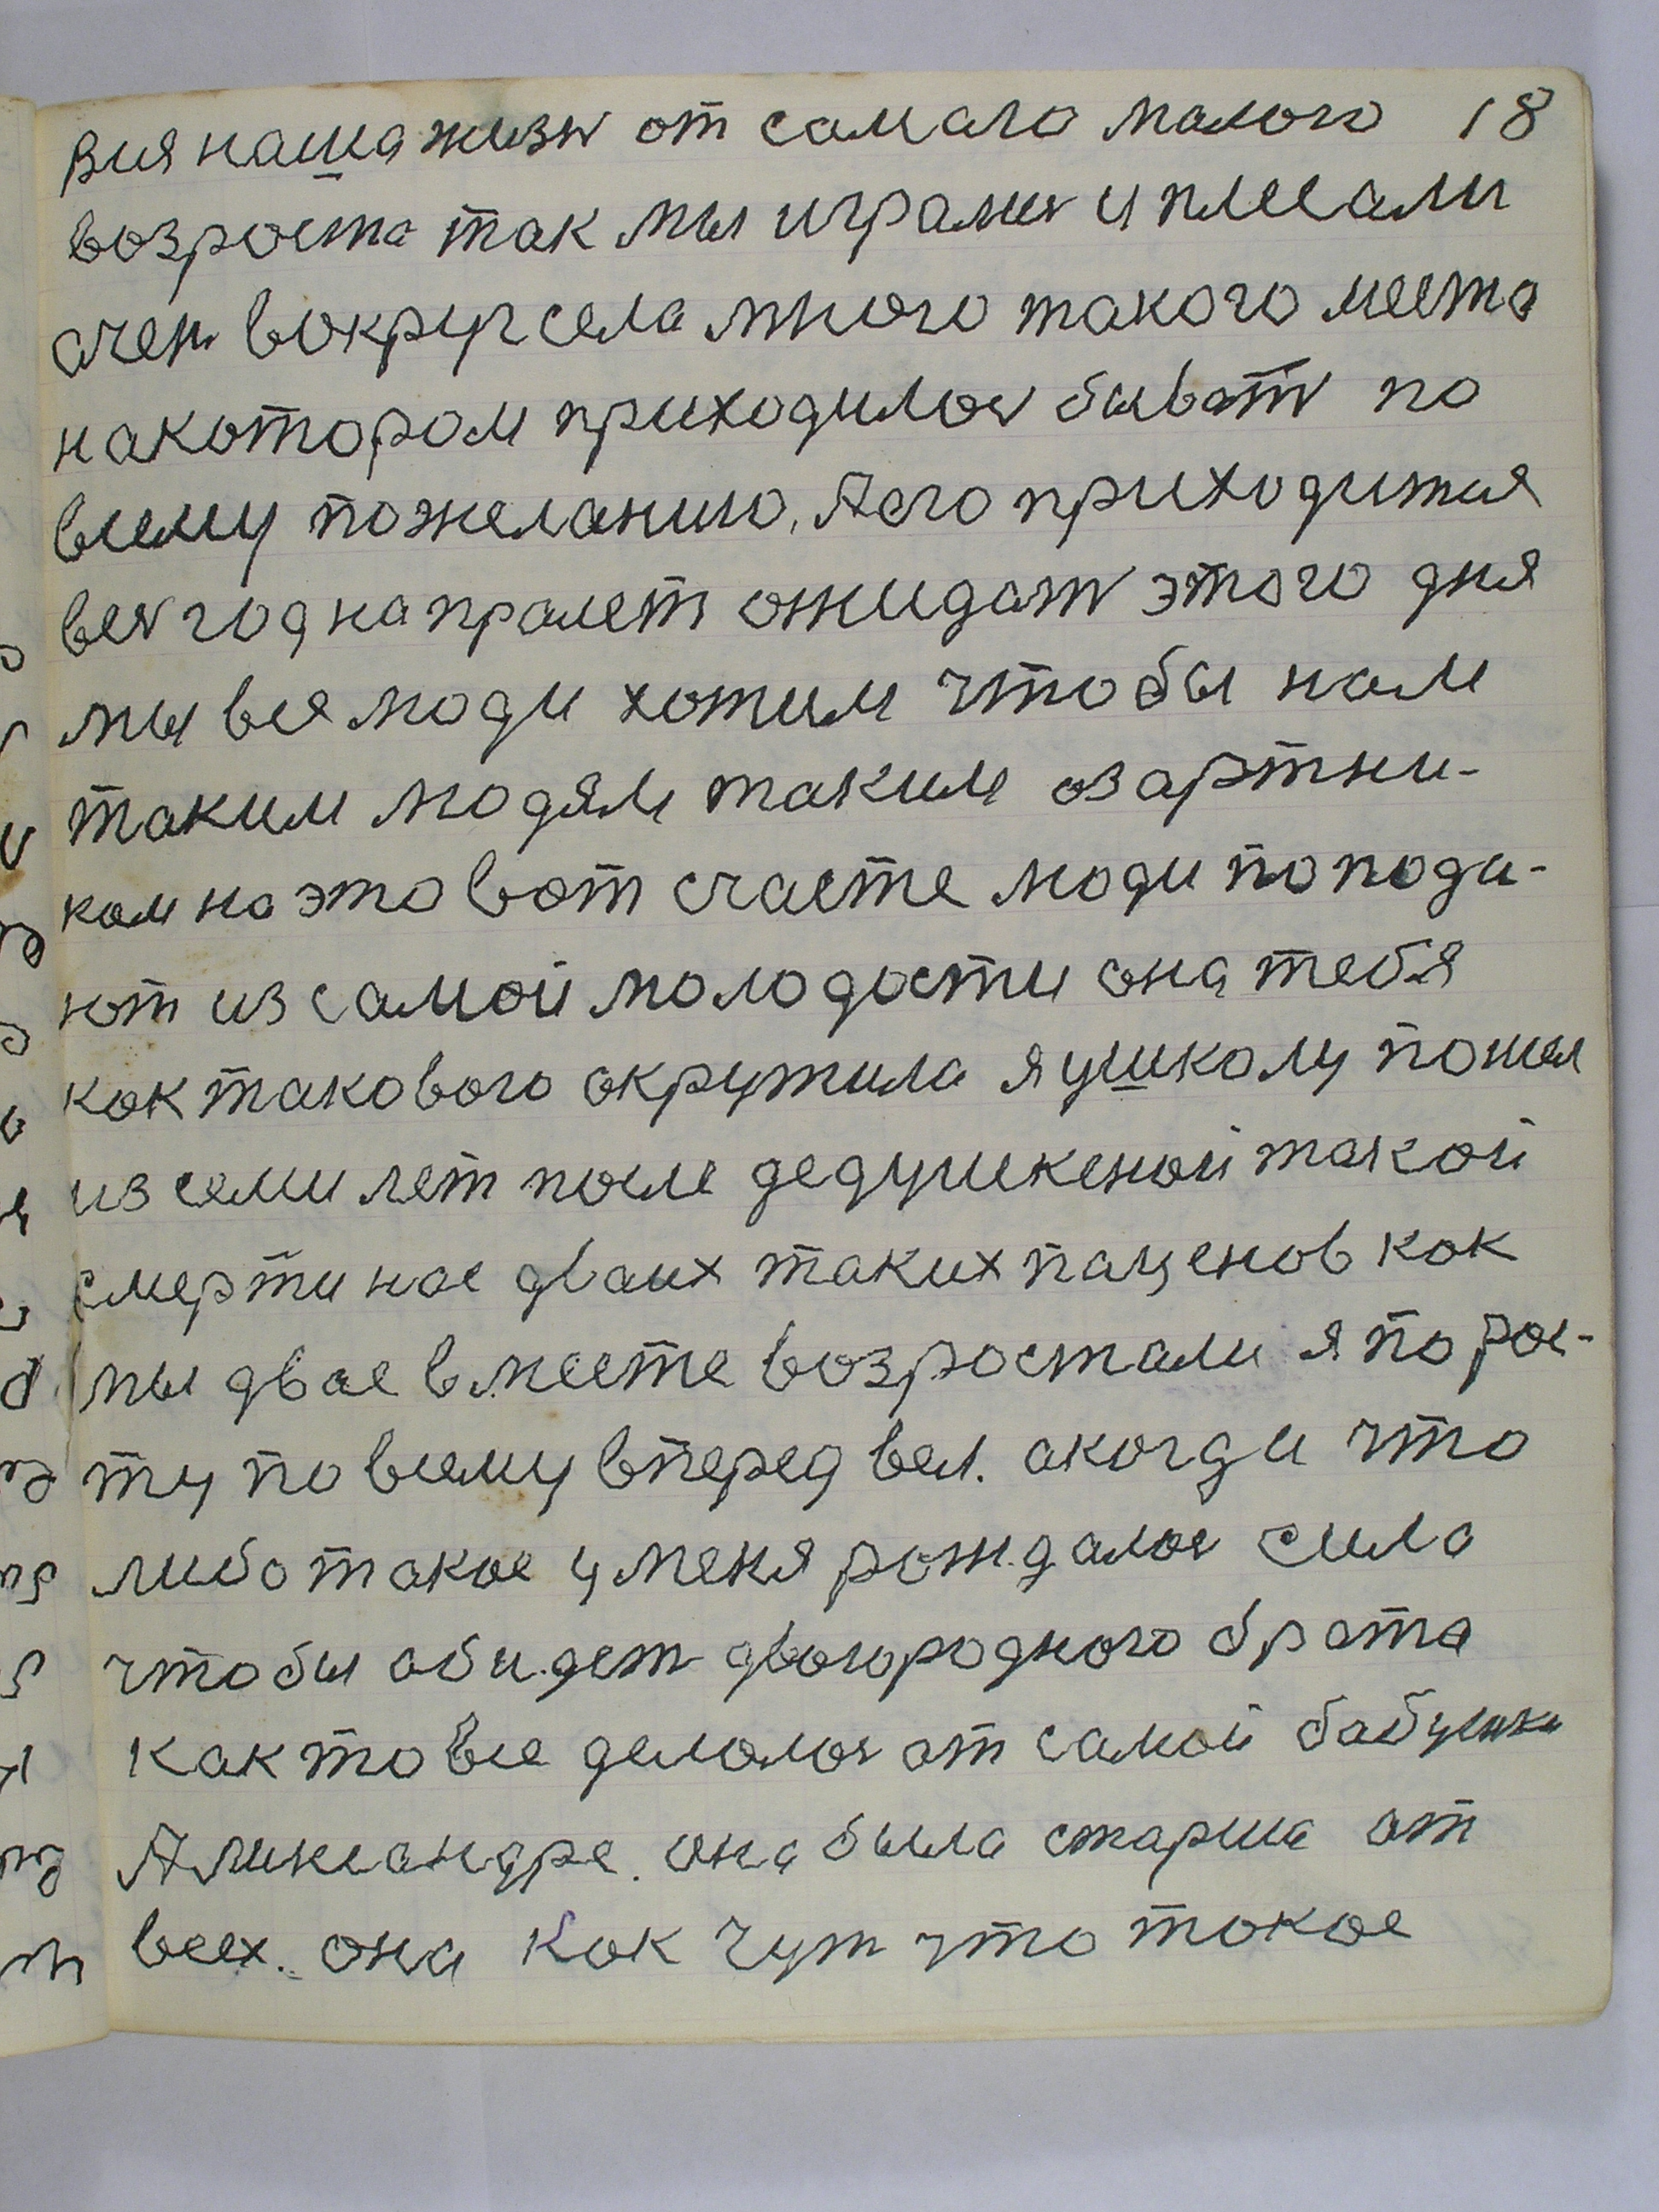 вия наша жизн от самаго малого 18
возроста так мы играмы и плесали
очен вокруг села много такого места
накотором приходилос быват по
всему пожеланию, Аего приходится
вес год напралет ожидат этого дня
мы все люди хотим чтобы нам
таким людям таким озартни-
кам на это вот счасте люди попода-
ют из самой молодости она тебя
как такового окружила я ушколу пошел
из семи лет после дедушкеной такой
смерти нас двоих таких паценов как
мы двое вместе возростали я по рос-
ту по всему вперед вел. акогда что
либо такое у меня рождалос сила
чтобы обидет двоюродного брата
как то все делолос от самой бабушки
Аликсандре. она была старша от
всех. она как чут что токое